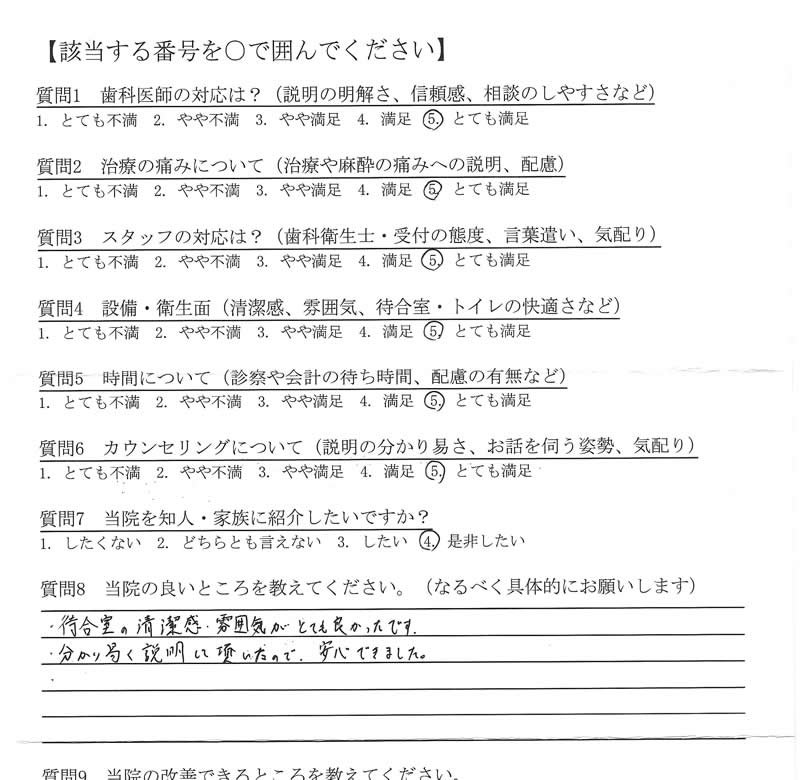 【該当する番号を〇で囲んでください】
質問1　歯科医師の対応は？（説明の明解さ、信頼感、相談のしやすさなど）
1. とても不満　2. やや不満　3. やや満足　4. 満足　5. とても満足
質問2　治療の痛みについて（治療や麻酔の痛みへの説明、配慮）
1. とても不満　2. やや不満　3. やや満足　4. 満足　5. とても満足
質問3　スタッフの対応は？（歯科衛生士・受付の態度、言葉遣い、気配り）
1. とても不満　2. やや不満　3. やや満足　4. 満足　5. とても満足
質問4　設備・衛生面（清潔感、雰囲気、待合室・トイレの快適さなど）
1. とても不満　2. やや不満　3. やや満足　4. 満足　5. とても満足
質問5　時間について（診察や会計の待ち時間、配慮の有無など）
1. とても不満　2. やや不満　3. やや満足　4. 満足　5. とても満足
質問6　カウンセリングについて（説明の分かり易さ、お話を伺う姿勢、気配り）
1. とても不満　2. やや不満　3. やや満足　4. 満足　5. とても満足
質問7　当院を知人・家族に紹介したいですか？
1. したくない　2. どちらとも言えない　3. したい　4. 是非したい
質問8　当院の良いところを教えてください。（なるべく具体的にお願いします）
・待合室の清潔感・雰囲気がとても良かったです.
・分かり易く説明して頂いたので、安心できました。
質問9　当院の改善できるところを教えてください。